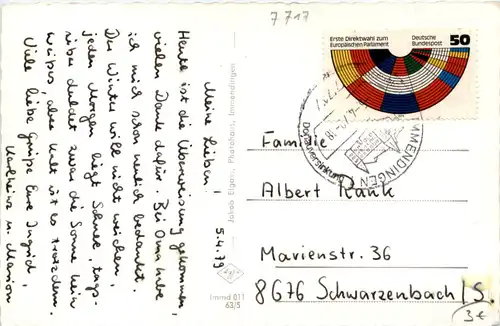 7717
Erste Direktwahl zum
Europäischen Parlament
Deutsche
Bundespost
50
IMMENDINGEN
5.4.79
Meine Lieben!
Heute ist die Überweisung gekommen,
vielen Dank dafür. Bei Oma habe
ich mich schon neulich bedankt.
Der Winter will nicht weichen,
jeden Morgen liegt Schnee, tags-
über duldet zwar die Sonne kein
weißes, aber kalt ist es trotzdem.
Viele liebe Grüße Eure Ingrid,
Karlheinz u. Marion
Jakob Elgam, Photohaus, Immendingen
Immd 011
63/5
Familie
Albert Rank
Marienstr. 36
8676 Schwarzenbach/S.
3€